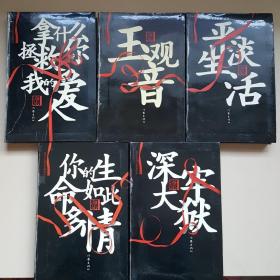 拿什么
拯救你
我的爱人
玉观音
平淡
生活
你的生
命如此
多情
深牢
大狱